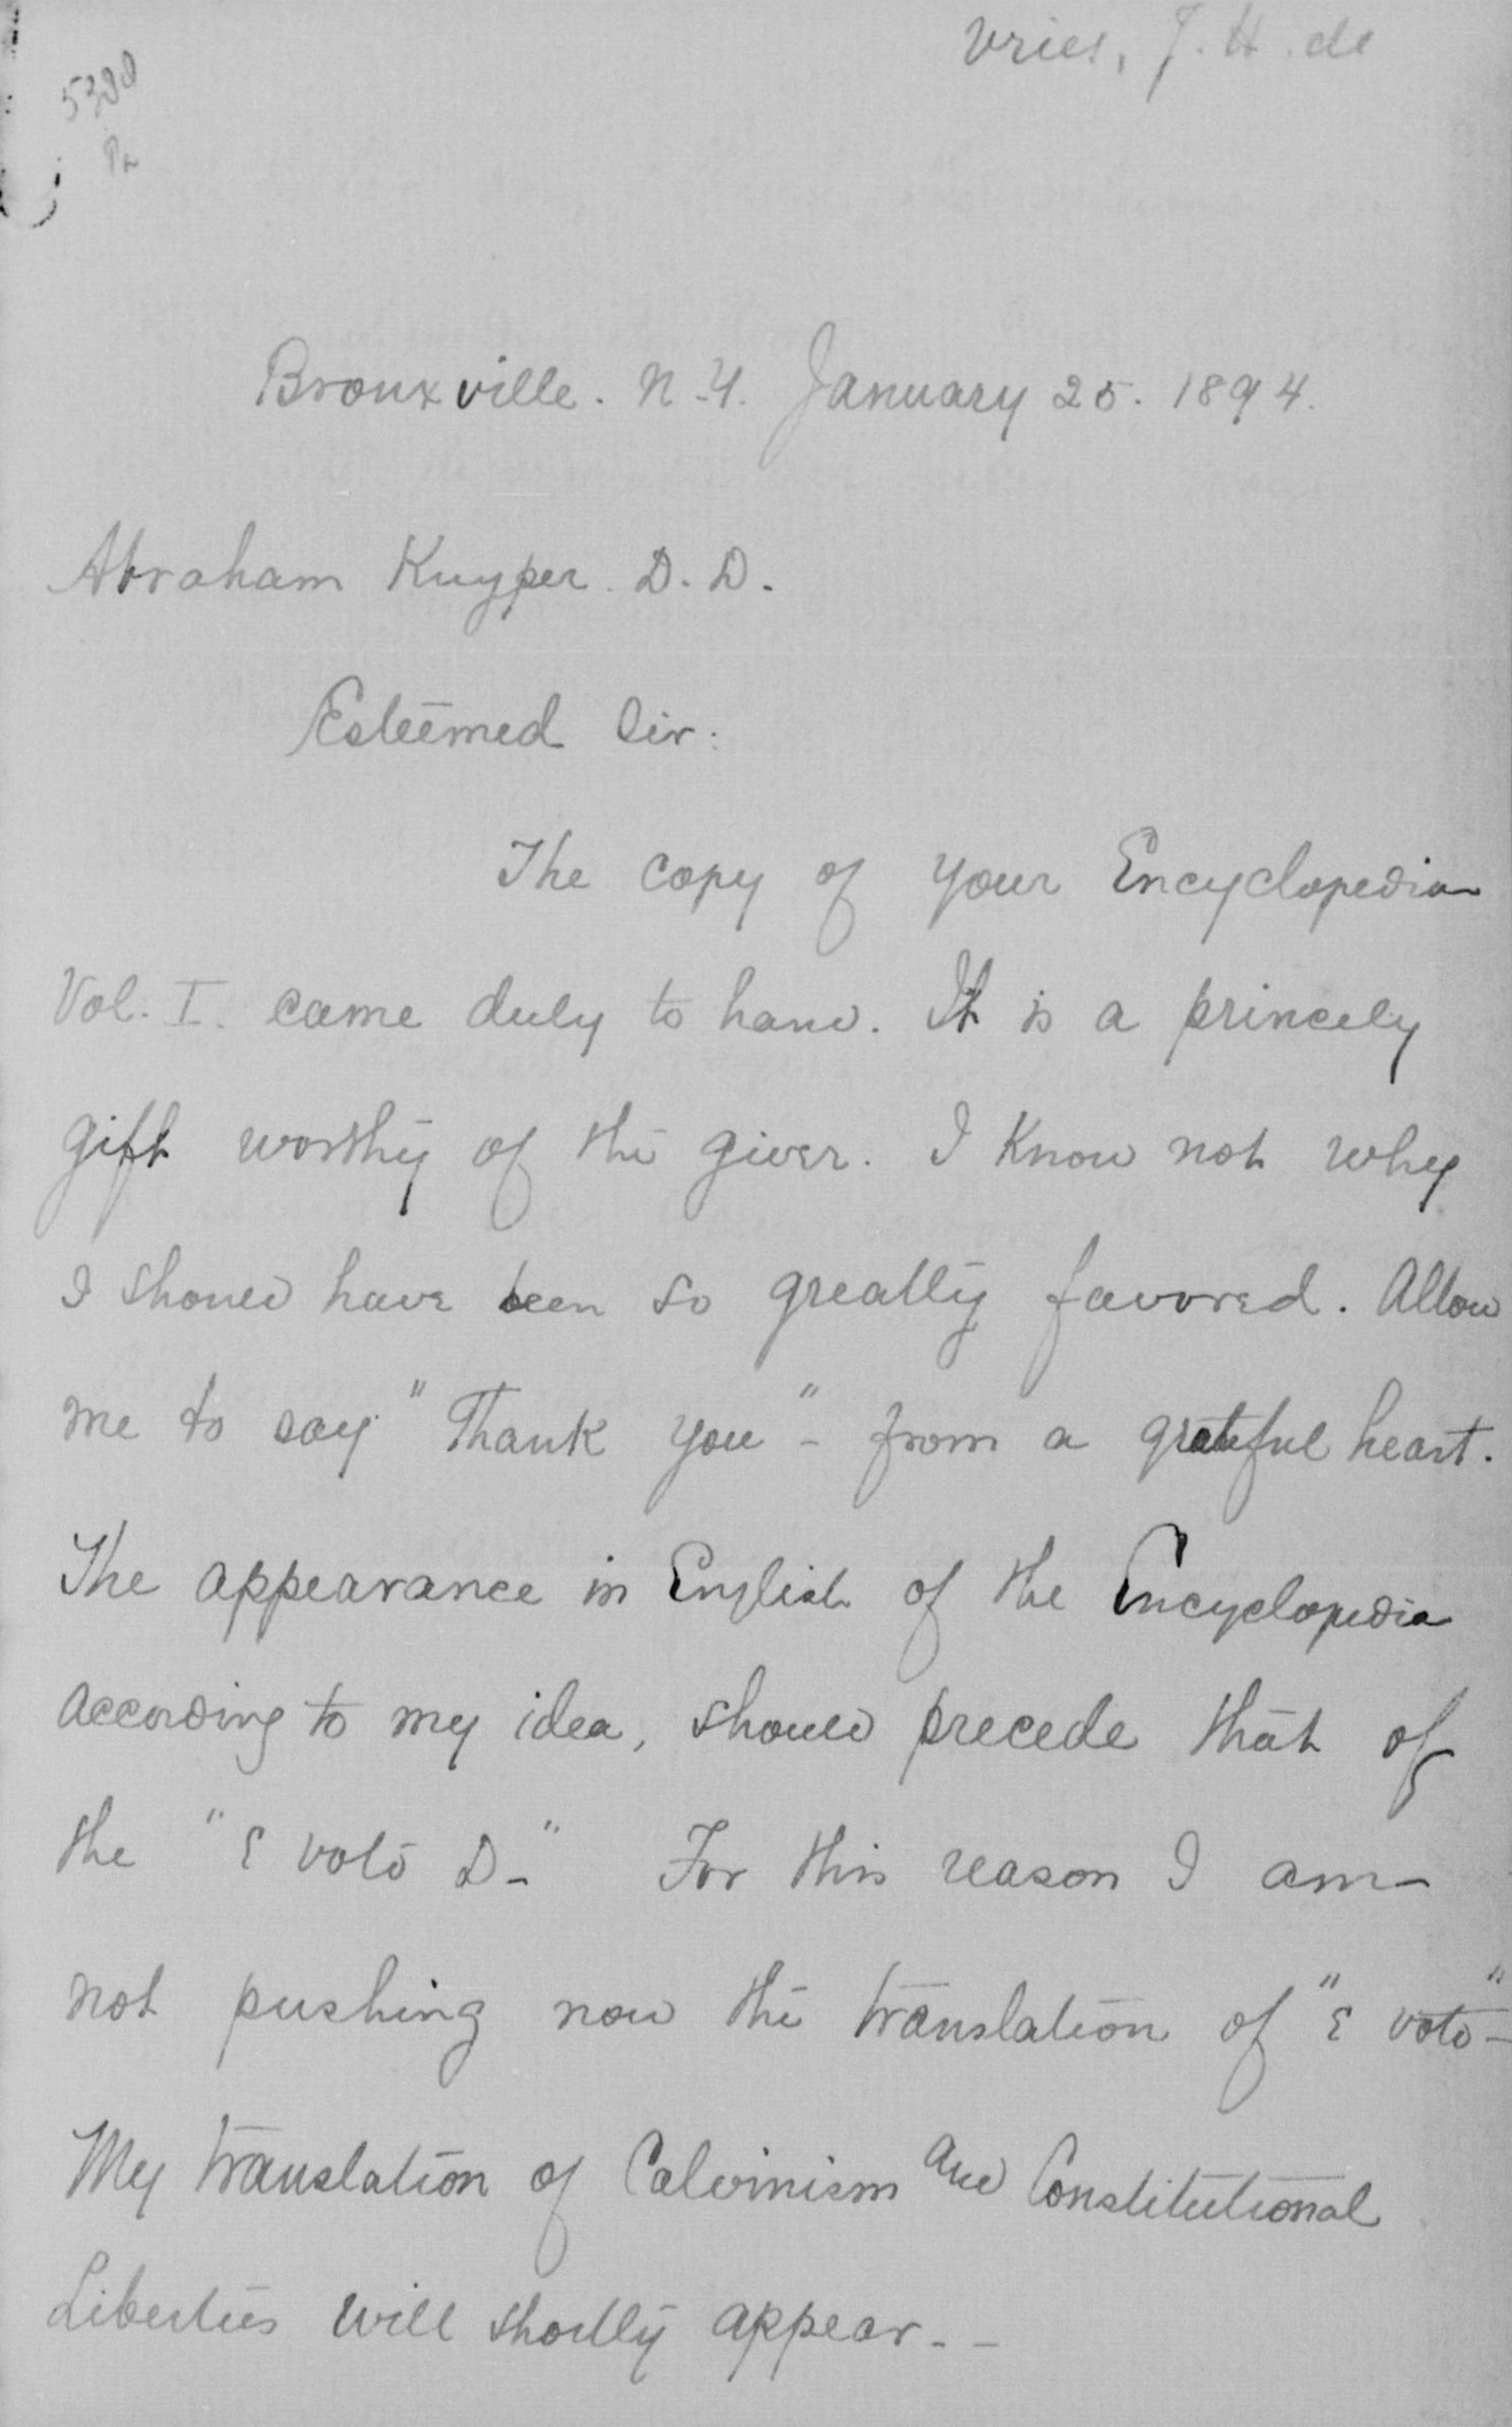 Vries, J. H. de
5390
Bronxville. N.Y. January 25. 1894.
Abraham Kuyper. D. D.
Esteemed Sir:
The copy of your Encyclopedia
Vol. I. came duly to hand. It is a princely
gift worthy of the giver. I know not why
I should have been so greatly favored. Allow
me to say "Thank you" - from a grateful heart.
The appearance in English of the Encyclopedia
according to my idea, should precede that of
the "E voto D-" For this reason I am
not pushing now the translation of "E voto"-
My translation of Calvinism and Constitutional
Liberties will shortly appear. -